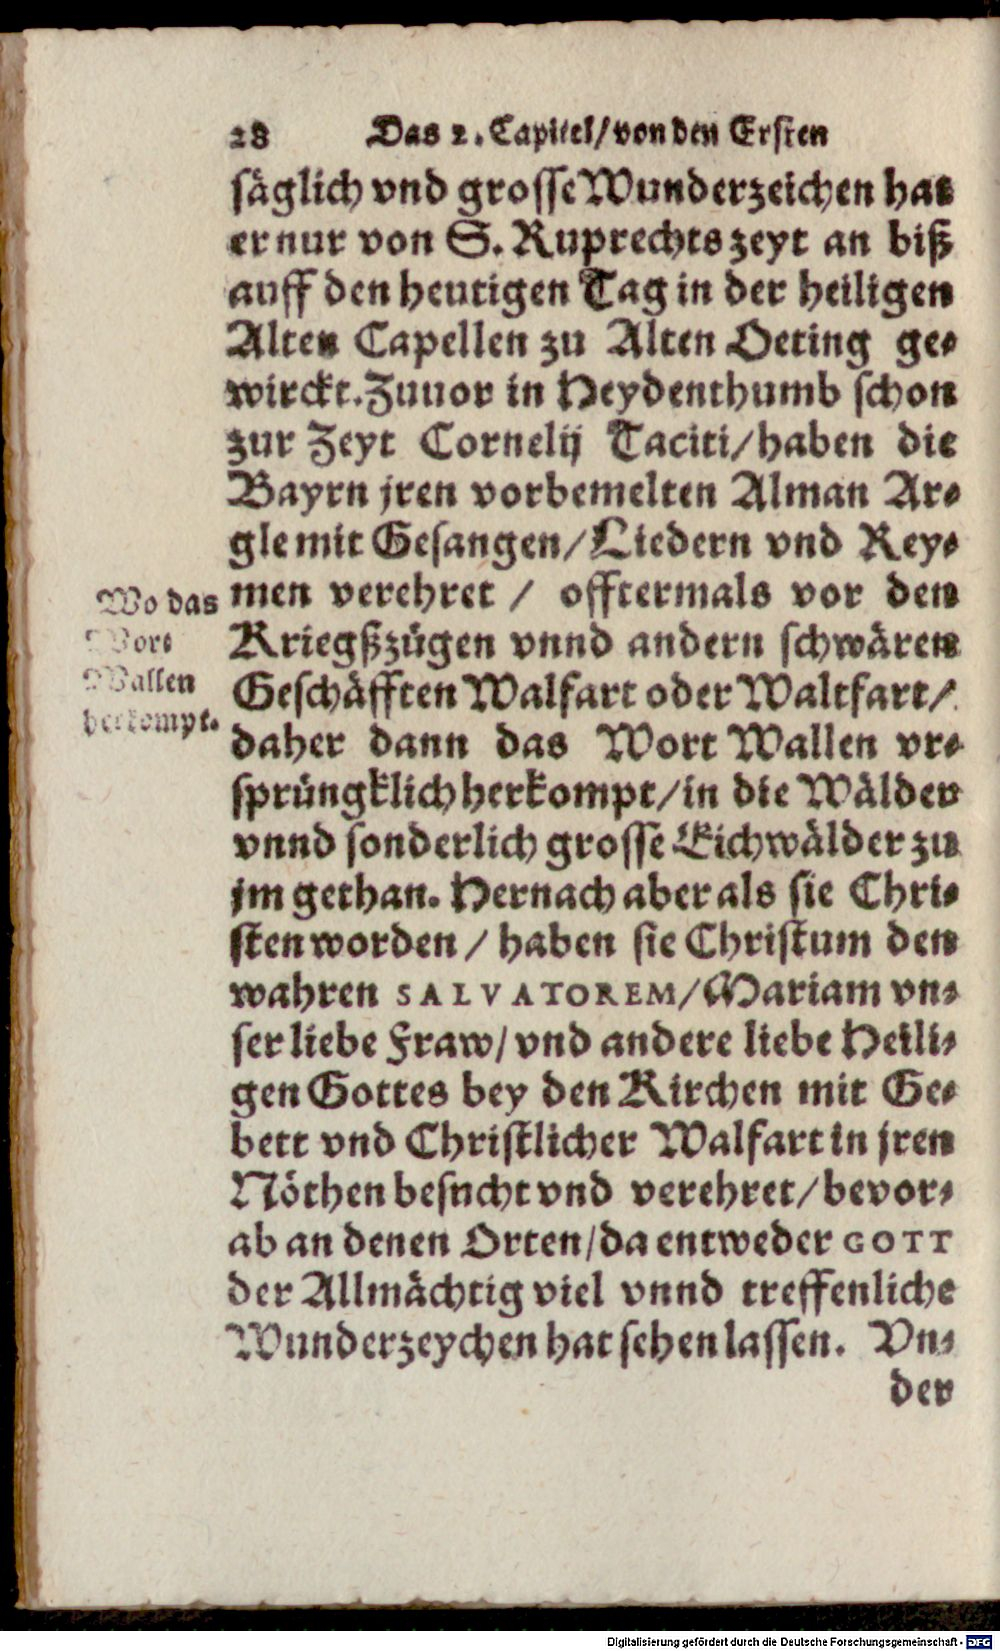 28 Das 2. Capitel/von den Ersten
säglich vnd grosse Wunderzeichen hat
er nur von S. Ruprechts zeyt an biß
auff den heutigen Tag in der heiligen
Alten Capellen zu Alten Oeting ge-
wirckt. Zuuor in Heydenthumb schon
zur Zeyt Cornelij Taciti/haben die
Bayrn jren vorbemelten Alman Ar-
gle mit Gesangen/Liedern vnd Rey-
men verehret / offtermals vor den
Kriegßzügen vnnd andern schwären
Geschäfften Walfart oder Waltfart/
daher dann das Wort Wallen vr-
sprüngklich herkompt/in die Wälder
vnnd sonderlich grosse Eichwälder zu
jm gethan. Hernach aber als sie Chri-
sten worden / haben sie Christum den
wahren SALVATOREM/Mariam vn-
ser liebe Fraw/vnd andere liebe Heili-
gen Gottes bey den Kirchen mit Ge-
bett vnd Christlicher Walfart in jren
Nöthen besucht vnd verehret/bevor-
ab an denen Orten/da entweder GOTT
der Allmächtig viel vnnd treffenliche
Wunderzeychen hat sehen lassen. Vn-
der
Wo das
Wort
Wallen
herkompt.
Digitalisierung gefördert durch die Deutsche Forschungsgemeinschaft - DFG